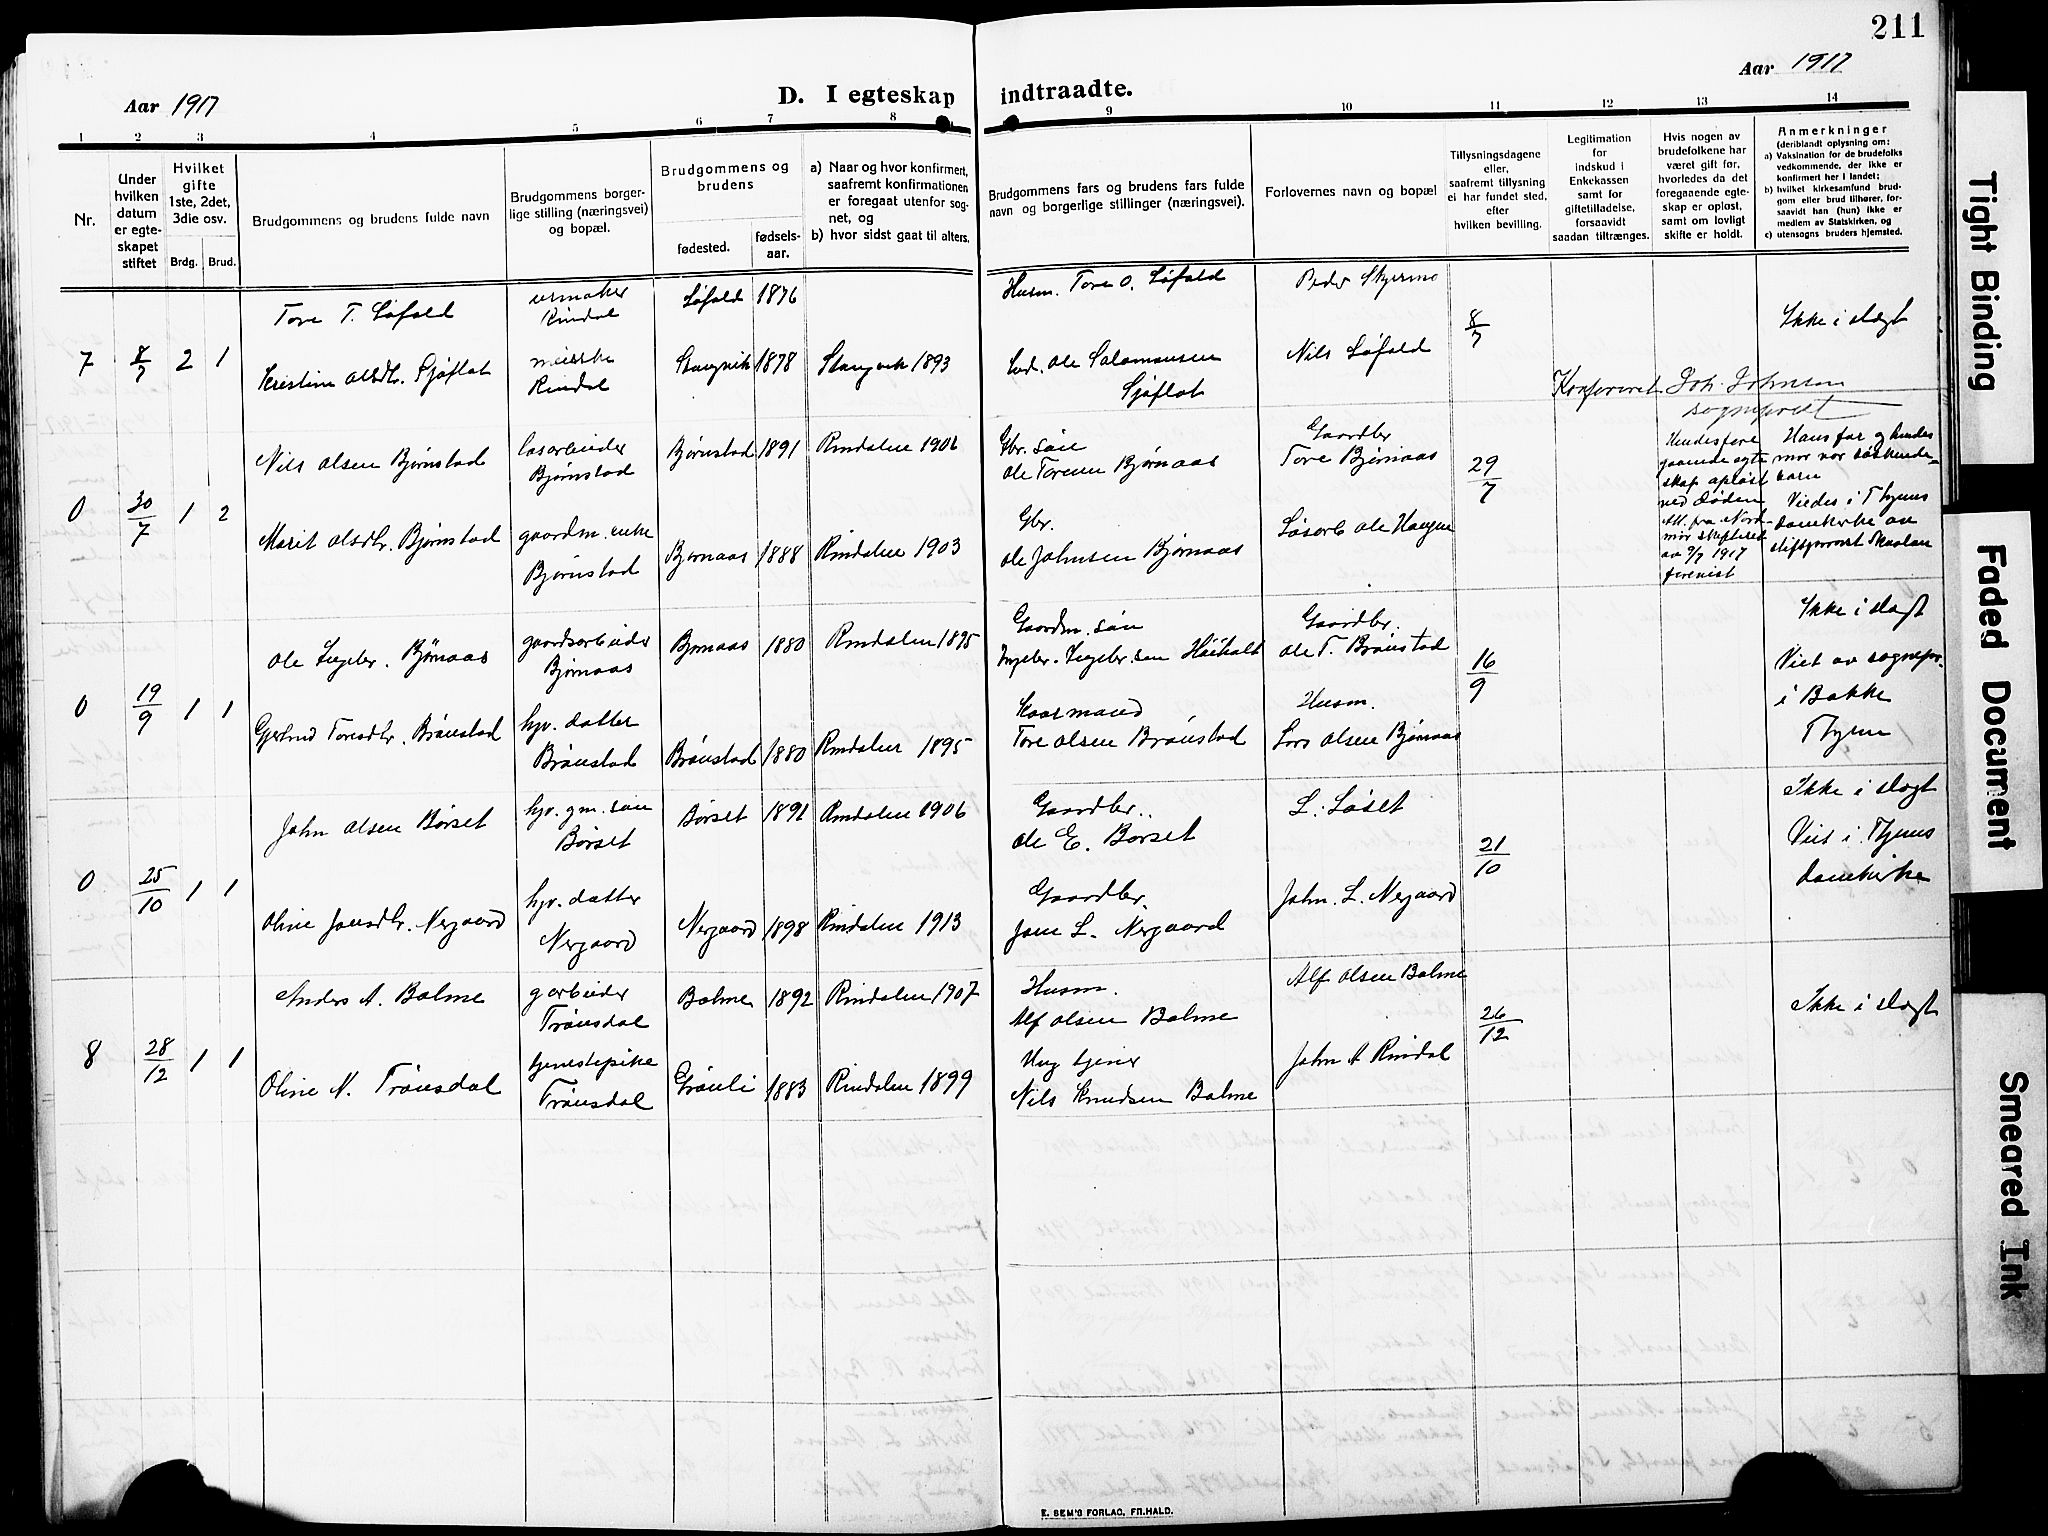 211
Aar 1917
D. I egteskap indtraadte.
Aar 1917
1 2 3 4 5 6 7 8 9 10 11 12 13 14
Nr.
Under hvilken datum er egte-skapet stiftet
Hvilket gifte 1ste, 2det, 3die osv.
Brdg. Brud.
Brudgommens og brudens fulde navn
Brudgommens borger-lige stilling (næringsvei) og bopæl.
Brudgommens og brudens
fødested.
fødsels-aar.
a) Naar og hvor konfirmert, saafremt konfirmationen er foregaat utenfor sog-net, og
b) hvor sidst gaat til alters.
Brudgommens fars og brudens fars fulde navn og borgerlige stillinger (næringsvei).
Forlovernes navn og bopæl
Tillysningsdagene eller, saafremt tillysning ei har fundet sted, efter hvilken bevilling.
Legitimation for indskud i Enkekassen samt for giftetilladelse, forsaavidt saadan tiltrænges.
Hvis nogen av brudefolkene har været gift før, hvorledes da det foregaaende egte-skap er opløst, samt om lovligt skifte er holdt.
Anmerkninger
(deriblandt oplysning om:
a) Vaksination for de brudefolks vedkommende, der ikke er konfirmert her i landet;
b) hvilket kirkesamfund brud-gom eller brud tilhører, for-saavidt han (hun) ikke er medlem av Statskirken, og
c) utensogns bruders hjemsted.
Tore T. Løfald urmaker Rindal Løfald 1876 Husm. Tore O. Løfald Peder Skjermo
7 8/7 2 1 8/7 Ikke i slegt
Kristine Olsdtr. Sjøflot Rindal Stangvik 1878 Stangvik 1893 Ole Salamonsen Sjøflot Nils Løfald
Konfereret Joh. Johnson sogneprest
Nils Olsen Bjørnstad løsarbeider Bjørnstad Bjørnstad 1891 Rindalen 1906 Gbr. søn Ole Toresen Bjørnaas Gaardbr Tore Bjørnaas
0 30/7 1 2 29/7
Marit Olsdtr. Bjørnstad gaardm. enke Bjørnstad Bjørnaas 1888 Rindalen 1903 Gbr. Ole Johnsen Bjørnaas Løsarb Ole Haugen
Hendes fore gaaende egte skap opløst ved døden Att. fra Nord-mør skifteret av 9/7 1917 forevist
Hans far og hendes mor var søskende-barn
Viedes i Thjems domkirke av stiftsprovst
Ole Ingebr. Bjørnaas gaardsarbeider Bjørnaas Bjørnaas 1880 Rindalen 1895 Gaardm. søn Ingebr. Ingebr.sen Gaardbr. Ole T. Brønstad
0 19/9 1 1 16/9 Ikke i slegt
Viet av sognepr. i Bakke Thjem
Gjertrud Toresdtr. Brønstad hjv. datter Brønstad Brønstad 1880 Rindalen 1895 Kaarmand Tore Olsen Brønstad Husm. Lars Olsen Bjørnaas
John Olsen Børset hjv. gm. søn Børset Børset 1891 Rindalen 1906 Gaardbr. Ole E. Børset L. Løset
0 25/10 1 1 21/10 Ikke i slegt
Viet i Thjems domkirke
Oline Jonsdtr. Nergaard hjv. datter Nergaard Nergaard 1898 Rindalen 1913 Gaardbr. Jon L. Nergaard John L. Nergaard
Anders A. Bolme g.arbeider Trønsdal Bolme 1892 Rindalen 1907 Husm. Alf Olsen Bolme Alf Olsen Bolme
8 28/12 1 1 26/12 Ikke i slegt
Oline N. Trønsdal tjenestepike Trønsdal Grønli 1883 Rindalen 1899 Nils Knudsen Bolme John A Rindal
E. SEM'S FORLAG, FR.HALD.
Tight Binding
Faded Document
Smeared Ink